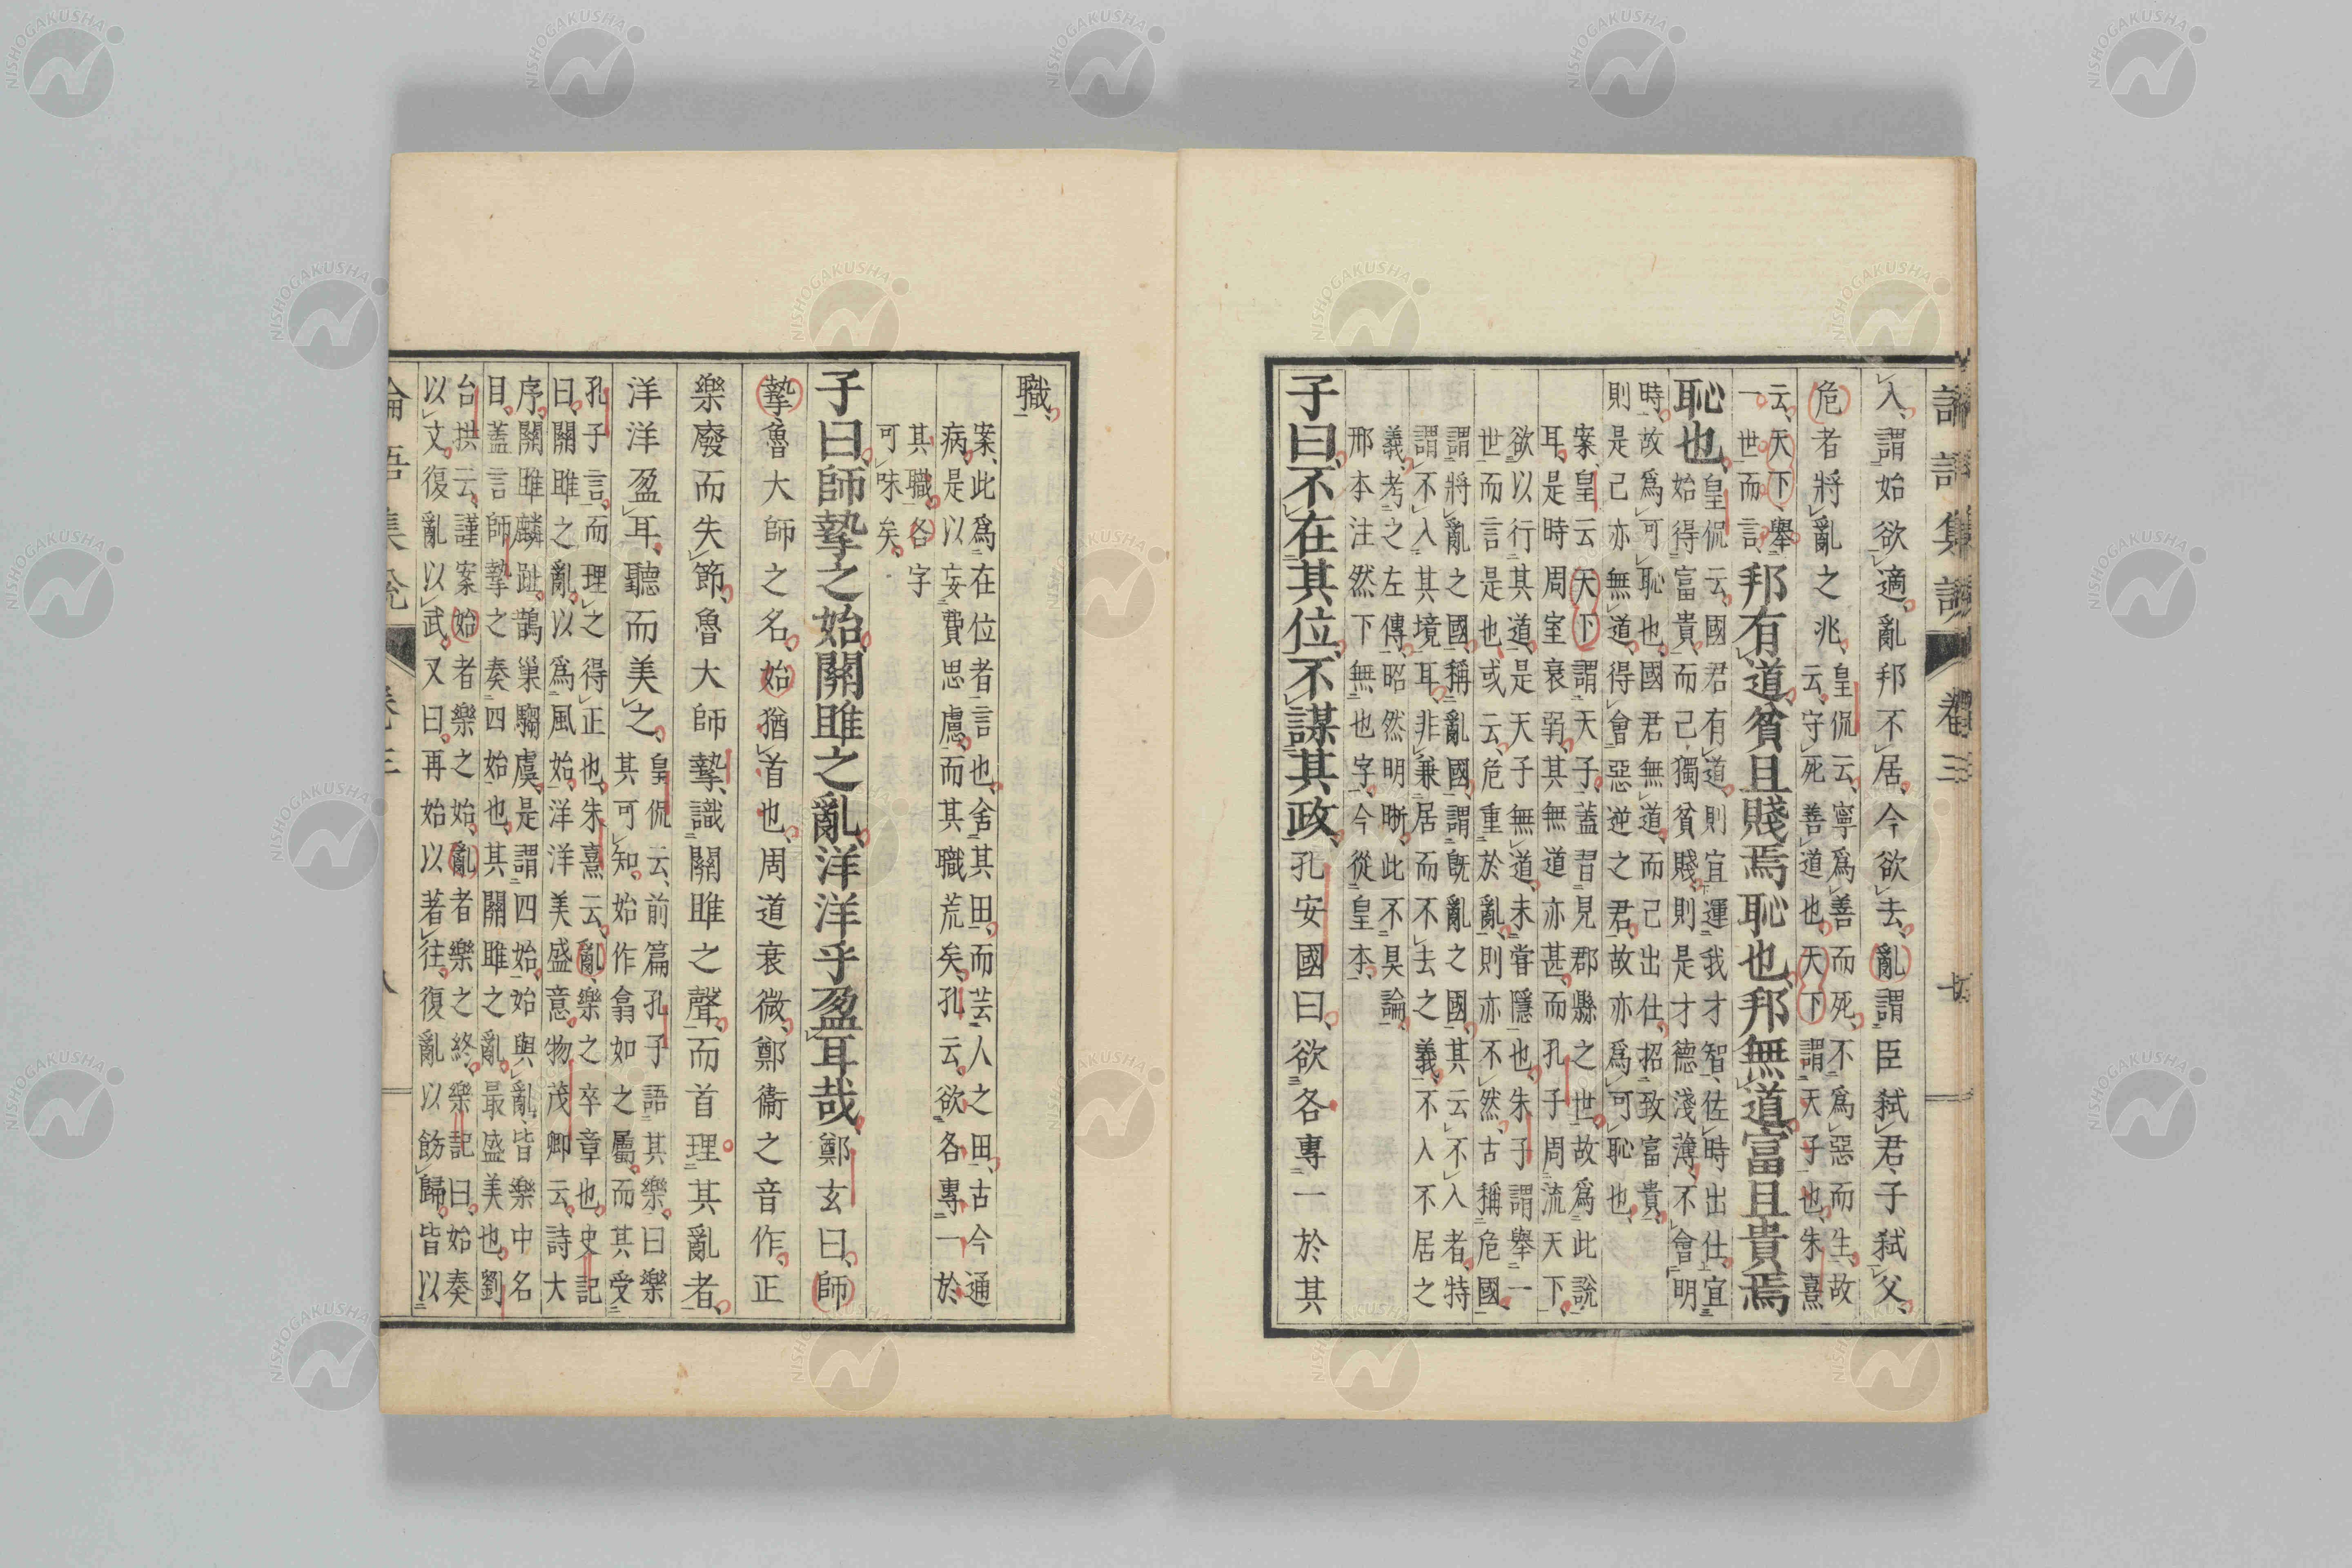 論語集說　卷三　七
入、謂始欲適、亂邦不居、今欲去、亂謂臣弑君、子弑父、
危者將亂之兆、皇侃云、寧爲善而死、不爲惡而生、故
云、守死善道也、天下謂天子也、朱熹
云、天下、舉
一世而言、邦有道貧且賤焉恥也、邦無道富且貴焉
恥也、皇侃云、國君有道、則宜運我才智、佐時出仕、宜
始得富貴、而己獨貧賤、則是才德淺薄、不會明
時、故爲可恥也、國君無道、而己出仕、招致富貴、
則是己亦無道、得會惡逆之君、故亦爲可恥也、
案、皇云天下謂天子、蓋習見郡縣之世、故爲此說
耳、是時周室衰弱、其無道亦甚、而孔子周流天下、
欲以行其道、是天子無道、未嘗隱也、朱子謂舉一
世而言是也、或云、危重於亂、則亦不然、古稱危國、
謂將亂之國、稱亂國、謂旣亂之國、其云不入者、特
謂不入其境耳、非兼居而不去之義、不入不居之
義、考之左傳、昭然明晰、此不具論、
邢本注然下無也字、今從皇本、
子曰、不在其位、不謀其政、孔安國曰、欲各專一於其
職、
案、此爲在位者言也、舍其田、而芸人之田、古今通
病、是以妄費思慮、而其職荒矣、孔云、欲各專一於
其職、各字
可味矣、
子曰、師摯之始、關雎之亂、洋洋乎盈耳哉、鄭玄曰、師
摯魯大師之名、始猶首也、周道衰微、鄭衞之音作、正
樂廢而失節、魯大師摯、識關雎之聲、而首理其亂者、
洋洋盈耳、聽而美之、皇侃云、前篇孔子語其樂曰樂
其可知、始作翕如之屬、而其受
孔子言、而理之得正也、朱熹云、亂、樂之卒章也、史記
曰、關雎之亂、以爲風始、洋洋美盛意、物茂卿云、詩大
序、關雎麟趾鵲巢騶虞、是謂四始、始與亂、皆樂中名
目、蓋言師摯之奏四始也、其關雎之亂、最盛美也、劉
台拱云、謹案始者樂之始、亂者樂之終、樂記曰、始奏
以文、復亂以武、又曰、再始以著往、復亂以飭歸、皆以
論語集說　卷三　八
NISHOGAKUSHA